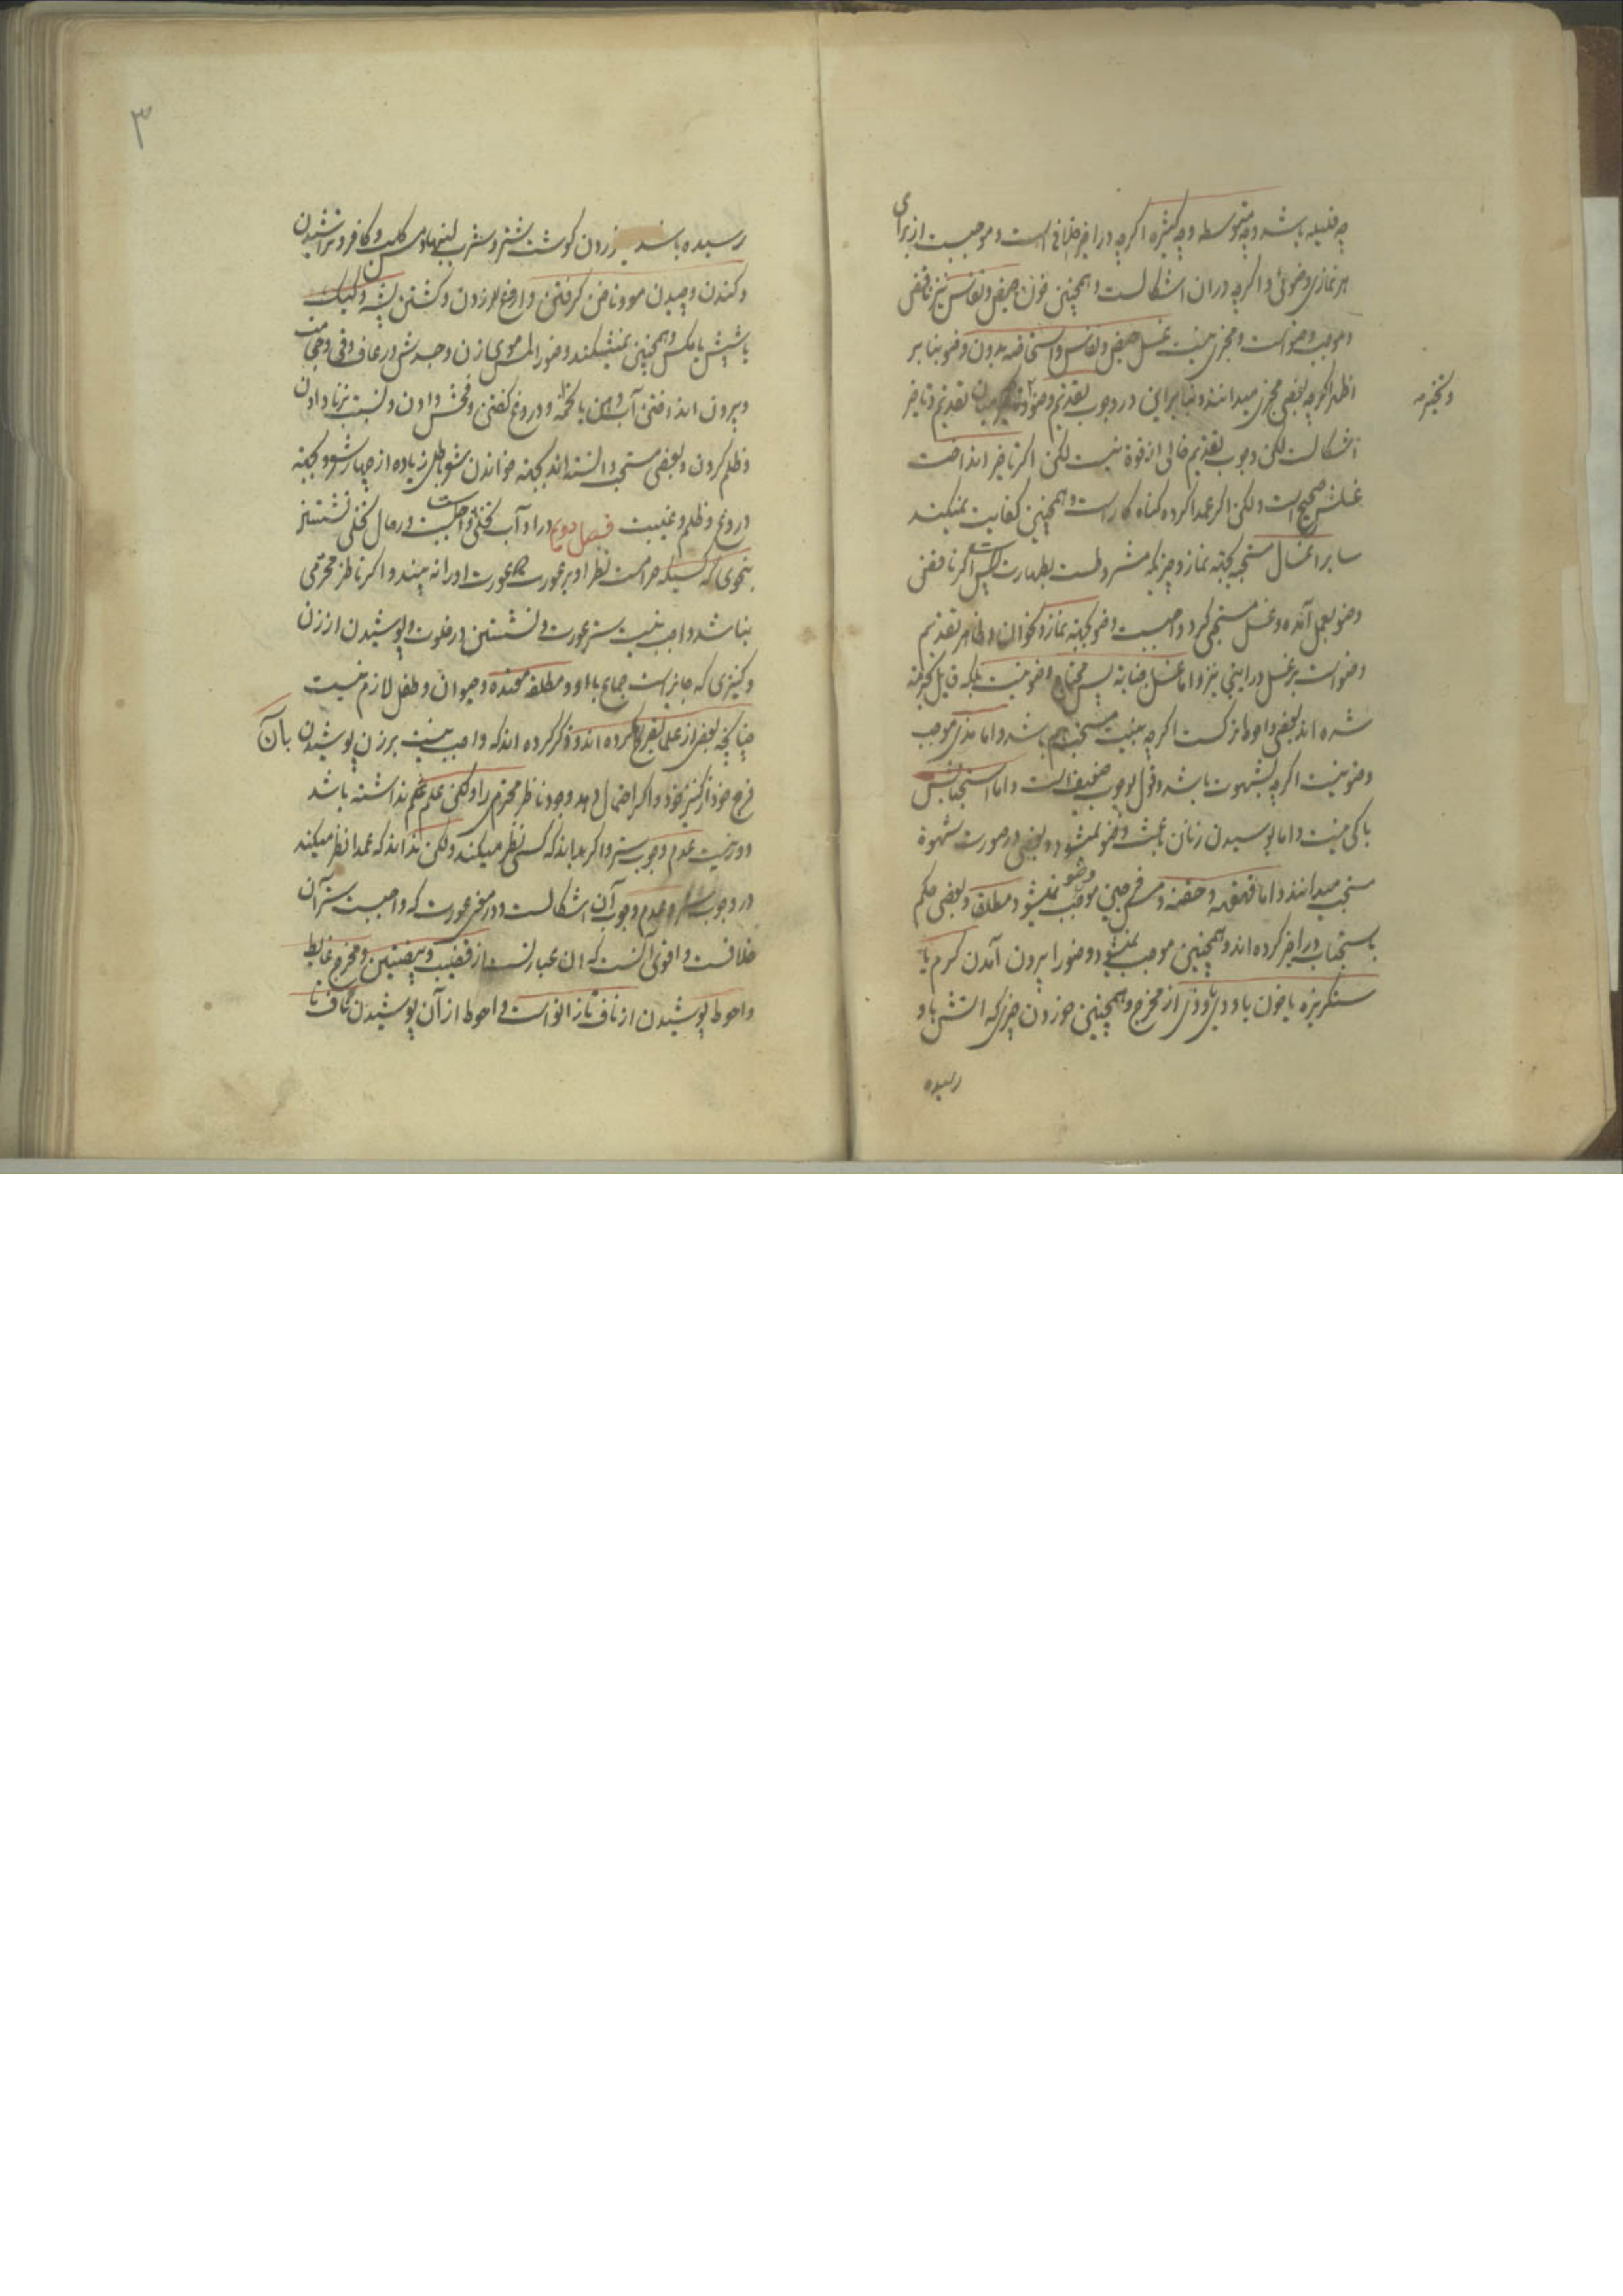 چه قلیله باشد و چه متوسطه و چه کثیره اگرچه در اخیر خلافی است و موجبست از برای
هر نمازی وضوئی را اگرچه در ان اشکالست و همچنین خون حیض و نفاس نیز ناقض
و موجب وضو است و مجزی نیست غسل حیض و نفاس و استحاضه بدون وضو بنا بر
اظهر اگرچه بعضی مجزی میدانند و بنا براین در وجوب تقدیم وضو و تخییر میان تقدیم و تاخیر
اشکالست لکن وجوب تقدیم خالی از قوة نیست لکن اگر تاخیر انداخت
غسلش صحیح است ولکن اگر عمدا کرده گناه کار است و همچنین کفایت نمیکند
سایر اغسال مستحبه بجهة نماز و چیزیکه مشروطست بطهارت پس اگر ناقض
وضو بعمل آمده و غسل مستحبی کرد واجبست وضو بجهة نماز و نحو ان و ظاهر تقدیم
وضو است بر غسل در اینجا نیز و اما غسل جنابة پس محتاج بوضو نیست بلکه قایل بحرمة
شده اند بعضی و احوط ترکست اگرچه به نیت مستحب هم باشد و اما مذی موجب
وضو نیست اگرچه بشهوت باشد و قول بوجوب ضعیف است و اما استحبابش
باکی نیست و اما بوسیدن زنان باعث وضو نمیشود و بعضی در صورت شهوة
مستحب میدانند و اما قهقهه و حقنه و مس فرجین موجب وضو نمیشود مطلقا و بعضی حکم
باستحباب در اخیر کرده اند و همچنین موجب نمیشود وضو را بیرون آمدن کرم یا
سنکریزه یا خون یا ودی و وذی از مخرج و همچنین خوردن چیزی که اتش باو
رسیده
رسیده باشد خوردن کوشت شتر و شرب لبنها و مس کلب و کافر و تراشیدن
و کندن و چیدن مو و ناخن کرفتن و اروغ زدن و کشتن پشه و کیک
یا شپش یا مکس و همچنین نمیشکند وضو را لمس موی زن و جسدش و رعاف و قی و حجامت
و بیرون انداختن آب دهن یا نخمه و دروغ کفتن و فحش دادن و نسبت بزنا دادن
و ظلم کردن و بعضی مستحب دانسته اند بجهة خواندن شعر باطل زیاده از چهار شعر و بجهة
دروغ و ظلم و غیبت فصل دویم در اداب تخلی واجبست در حال تخلی نشستن
بنحوی که کسیکه حرامست نظر او بر عورت عورت او را نه بیند و اکر ناظر محترمی
نباشد واجب نیست ستر عورت و نشستن در خلوت و پوشیدن از زن
و کنیزی که جایز است جماع با او و مطلقه و حیوان و طفل لازم نیست
چنانچه بعضی از علما تصریح کرده اند و ذکر کرده اند که واجب نیست بر زن پوشیدن بآن
فرج خود از کنیز خود و اکر احتمال دهد وجود ناظر محترم را ولکن علم هم نداشته باشد
دور نیست عدم وجوب ستر و اکر بداند که کسی نظر میکند ولکن نداند که عمدا نظر میکند
در وجوب ستر و عدم وجوب آن اشکالست و در معنی عورت که واجبست ستر آن
خلافست و اقوی آنست که ان عبارتست از قضیب و بیضتین و مخرج غایط
و احوط پوشیدن از ناف تا زانو است و احوط از آن پوشیدن ناف تا